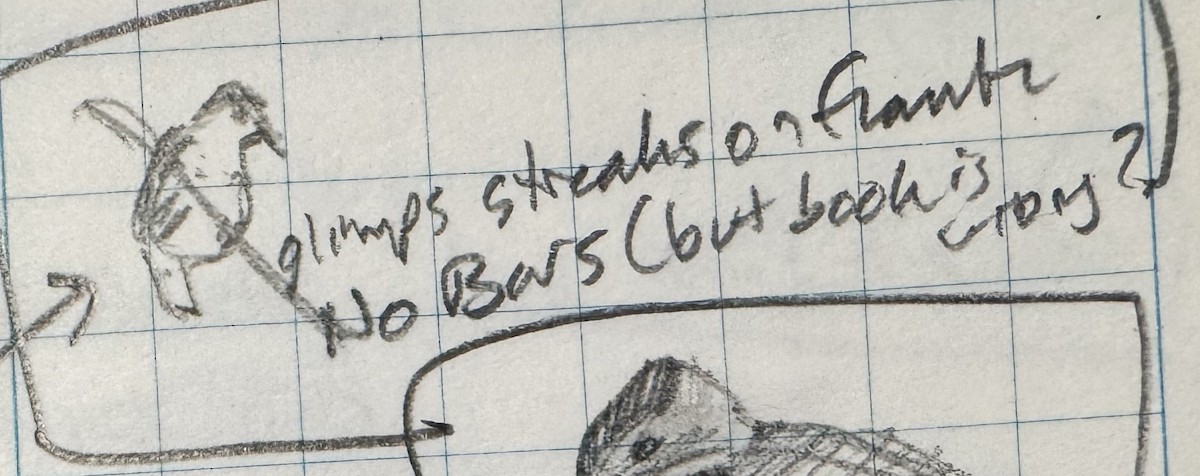 glimps streaks on flank
No Bars (but book is wrong?